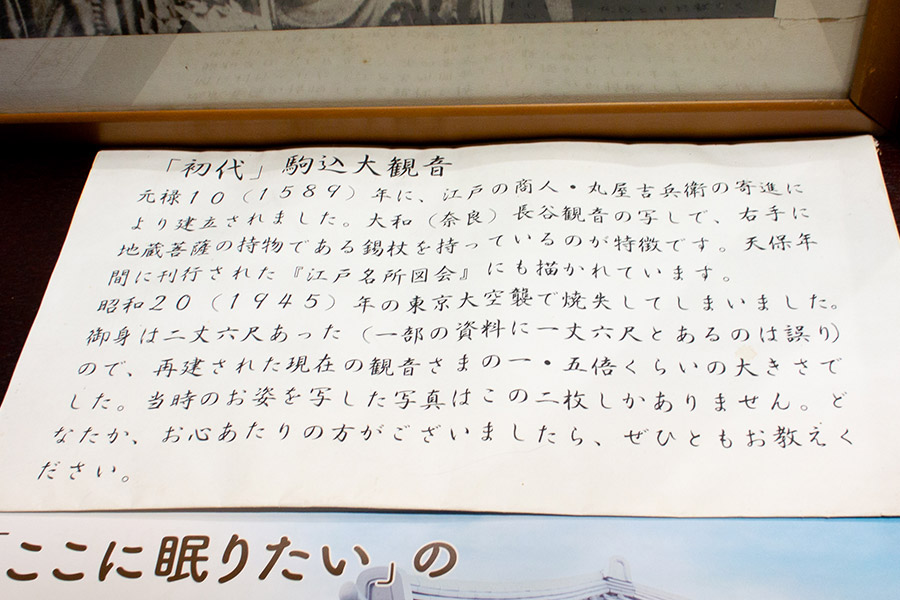 「初代」駒込大観音
元禄10（1589）年に、江戸の商人・丸屋吉兵衛の寄進に
より建立されました。大和（奈良）長谷観音の写しで、右手に
地蔵菩薩の持物である錫杖を持っているのが特徴です。天保年
間に刊行された『江戸名所図会』にも描かれています。
昭和20（1945）年の東京大空襲で焼失してしまいました。
御身は二丈六尺あった（一部の資料に一丈六尺とあるのは誤り）
ので、再建された現在の観音さまの一・五倍くらいの大きさで
した。当時のお姿を写した写真はこの二枚しかありません。ど
なたか、お心あたりの方がございましたら、ぜひともお教えく
ださい。
「ここに眠りたい」の